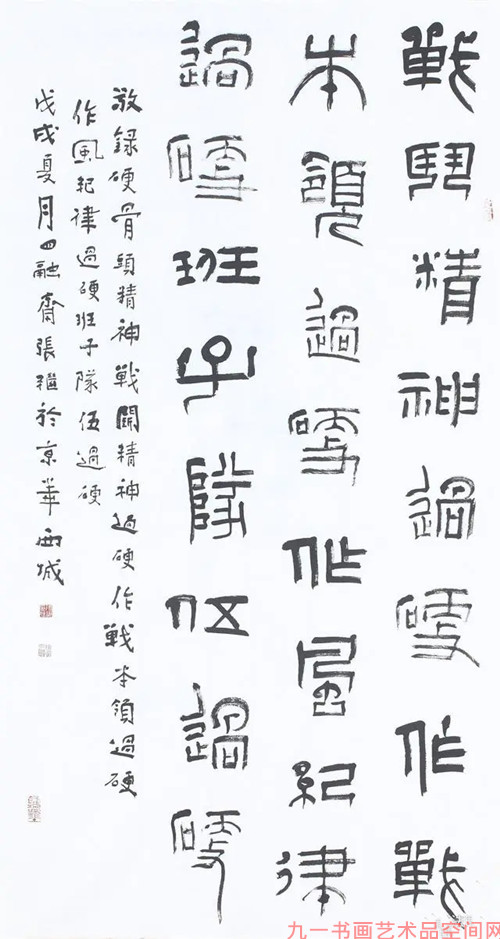 戰鬥精神過硬作戰
本領過硬作風紀律
過硬班子隊伍過硬
敬録硬骨頭精神戰鬭精神過硬作戰本領過硬
作風紀律過硬班子隊伍過硬
戊戌夏月四融齋張繼於京華西城
九一书画艺术品空间网